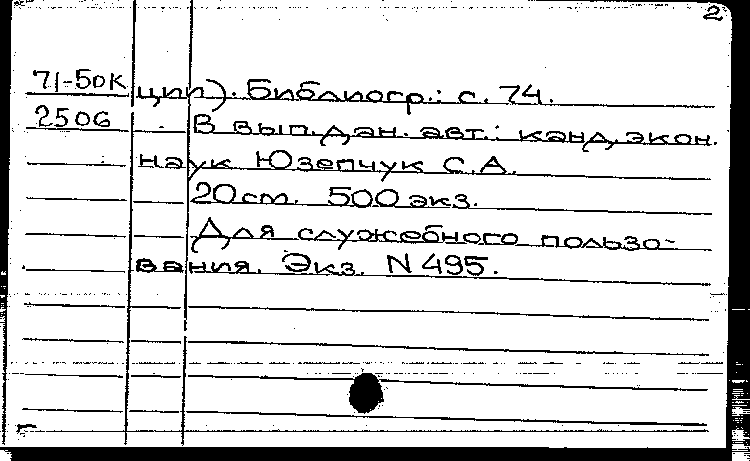 2
71-50К ции). Библиогр.: с. 74.
2506 В вып. дан. авт.: канд. экон.
наук Юзепчук С.А.
20 см. 500 экз.
Для служебного пользо-
вания. Экз. N 495.